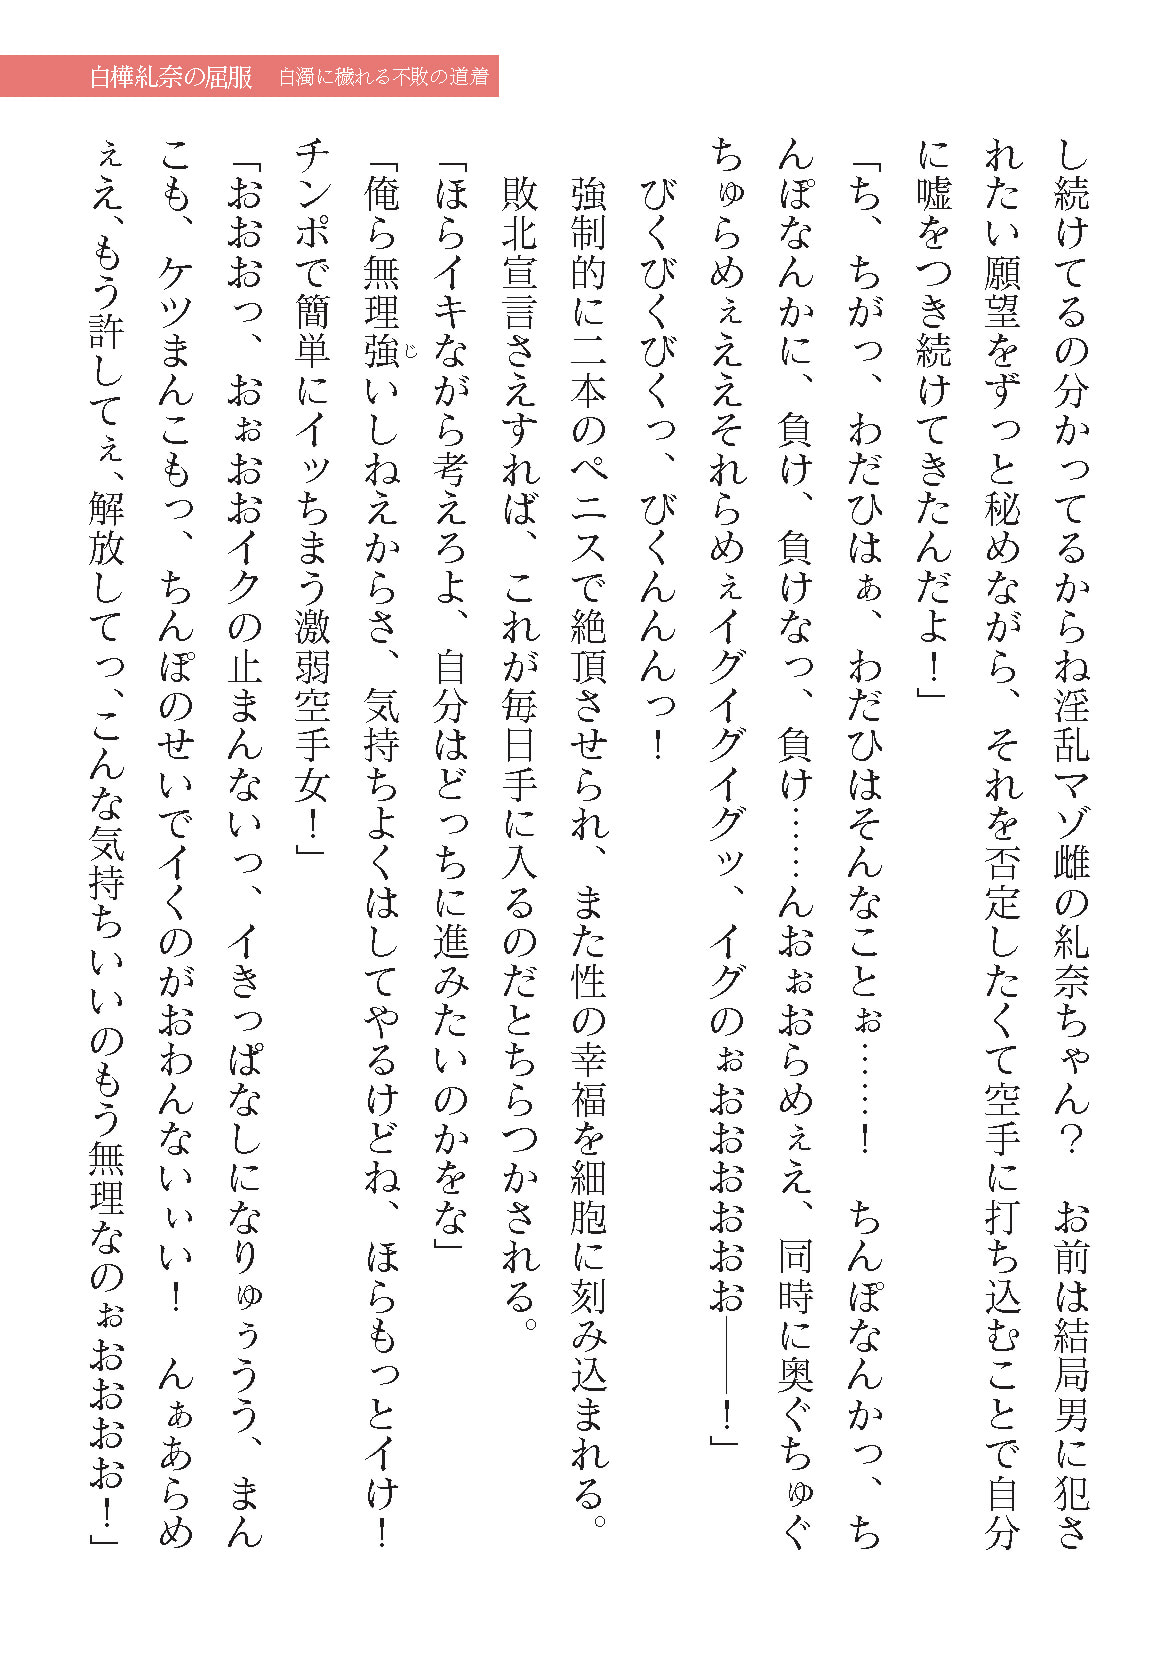 白樺糺奈の屈服　白濁に穢れる不敗の道着
し続けてるの分かってるからね淫乱マゾ雌の糺奈ちゃん？　お前は結局男に犯さ
れたい願望をずっと秘めながら、それを否定したくて空手に打ち込むことで自分
に嘘をつき続けてきたんだよ！」
「ち、ちがっ、わだひはぁ、わだひはそんなことぉ……！　ちんぽなんかっ、ち
んぽなんかに、負け、負けなっ、負け……んおぉおらめぇえ、同時に奥ぐちゅぐ
ちゅらめぇええそれらめぇイグイグイグッ、イグのぉおおおおおお――！」
びくびくびくっ、びくんんんっ！
強制的に二本のペニスで絶頂させられ、また性の幸福を細胞に刻み込まれる。
敗北宣言さえすれば、これが毎日手に入るのだとちらつかされる。
「ほらイキながら考えろよ、自分はどっちに進みたいのかをな」
「俺ら無理強じいしねえからさ、気持ちよくはしてやるけどね、ほらもっとイけ！
チンポで簡単にイッちまう激弱空手女！」
「おおおっ、おぉおおイクの止まんないっ、イきっぱなしになりゅぅうう、まん
こも、ケツまんこもっ、ちんぽのせいでイくのがおわんないぃい！　んぁあらめ
ぇえ、もう許してぇ、解放してっ、こんな気持ちいいのもう無理なのぉおおおお！」